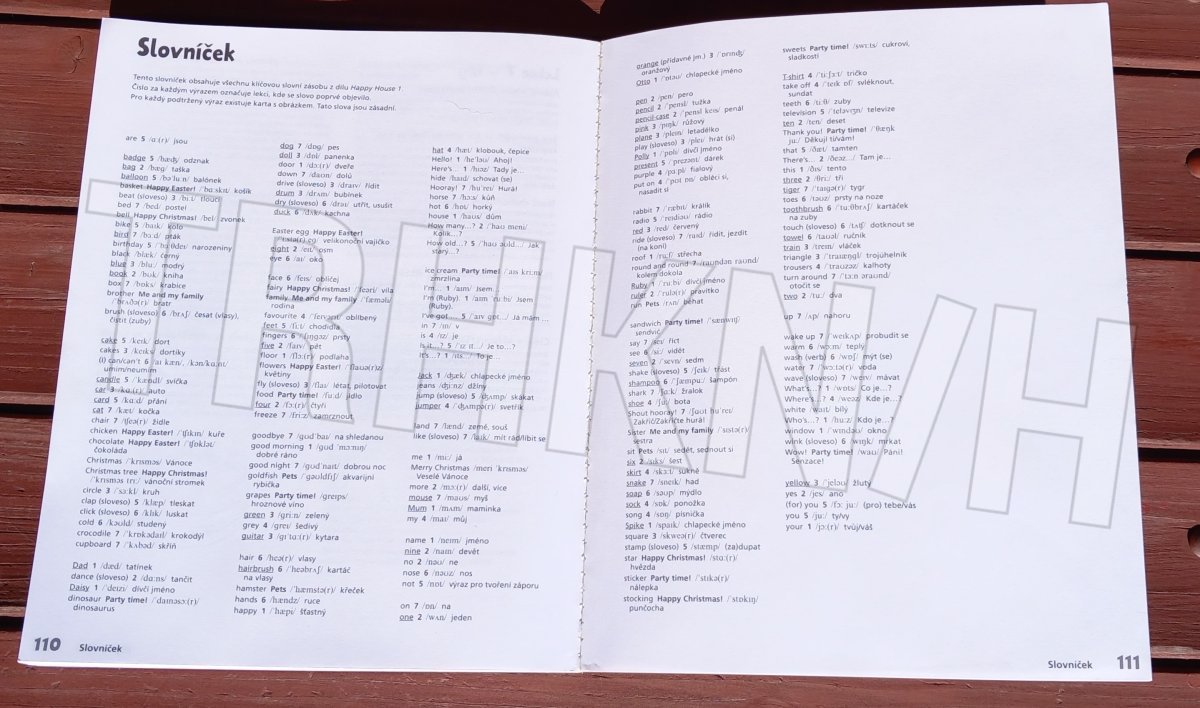 Slovníček
Tento slovníček obsahuje všechnu klíčovou slovní zásobu z dílu Happy House 1.
Číslo za každým výrazem označuje lekci, kde se slovo poprvé objevilo.
Pro každý podtržený výraz existuje karta s obrázkem. Tato slova jsou zásadní.
are 5 /ɑː(r)/ jsou
badge 5 /bædʒ/ odznak
bag 2 /bæg/ taška
balloon 5 /bəˈluːn/ balónek
basket Happy Easter! /ˈbɑːskɪt/ košík
beat (sloveso) 3 /biːt/ tlouct
bed 7 /bed/ postel
bell Happy Christmas! /bel/ zvonek
bike 5 /baɪk/ kolo
bird 7 /bɜːd/ pták
birthday 5 /ˈbɜːθdeɪ/ narozeniny
black 3 /blæk/ černý
blue 3 /bluː/ modrý
book 2 /bʊk/ kniha
box 7 /bɒks/ krabice
brother Me and my family
/ˈbrʌðə(r)/ bratr
brush (sloveso) 6 /brʌʃ/ česat (vlasy),
čistit (zuby)
cake 5 /keɪk/ dort
cakes 3 /keɪks/ dortíky
(I) can/can't 6 /aɪ kæn, /kɑːnt/
umím/neumím
candle 5 /ˈkændl/ svíčka
car 3 /kɑː(r)/ auto
card 5 /kɑːd/ přání
cat 7 /kæt/ kočka
chair 7 /tʃeə(r)/ židle
chicken Happy Easter! /ˈtʃɪkɪn/ kuře
chocolate Happy Easter! /ˈtʃɒklət/
čokoláda
Christmas /ˈkrɪsməs/ Vánoce
Christmas tree Happy Christmas!
/ˈkrɪsməs triː/ vánoční stromek
circle 3 /ˈsɜːkl/ kruh
clap (sloveso) 5 /klæp/ tleskat
click (sloveso) 6 /klɪk/ luskat
cold 6 /kəʊld/ studený
crocodile 7 /ˈkrɒkədaɪl/ krokodýl
cupboard 7 /ˈkʌbəd/ skříň
Dad 1 /dæd/ tatínek
dance (sloveso) 2 /dɑːns/ tančit
Daisy 1 /ˈdeɪzi/ dívčí jméno
dinosaur Party time! /ˈdaɪnəsɔː(r)/
dinosaurus
dog 7 /dɒg/ pes
doll 3 /dɒl/ panenka
door 1 /dɔː(r)/ dveře
down 7 /daʊn/ dolů
drive (sloveso) 3 /draɪv/ řídit
drum 3 /drʌm/ bubínek
dry (sloveso) 6 /draɪ/ utřít, usušit
duck 6 /dʌk/ kachna
Easter egg Happy Easter!
/ˈiːstə(r) eg/ velikonoční vajíčko
eight 2 /eɪt/ osm
eye 6 /aɪ/ oko
face 6 /feɪs/ obličej
fairy Happy Christmas! /ˈfeəri/ víla
family Me and my family /ˈfæməli/
rodina
favourite 4 /ˈfeɪvərɪt/ oblíbený
feet 5 /fiːt/ chodidla
fingers 6 /ˈfɪŋgəz/ prsty
five 2 /faɪv/ pět
floor 1 /flɔː(r)/ podlaha
flowers Happy Easter! /ˈflaʊə(r)z/
květiny
fly (sloveso) 3 /flaɪ/ létat, pilotovat
food Party time! /fuːd/ jídlo
four 2 /fɔː(r)/ čtyři
freeze 7 /friːz/ zamrznout
goodbye 7 /gʊdˈbaɪ/ na shledanou
good morning 1 /gʊd ˈmɔːnɪŋ/
dobré ráno
good night 7 /gʊdˈnaɪt/ dobrou noc
goldfish Pets /ˈgəʊldfɪʃ/ akvarijní
rybička
grapes Party time! /greɪps/
hroznové víno
green 3 /griːn/ zelený
grey 4 /greɪ/ šedivý
guitar 3 /gɪˈtɑː(r)/ kytara
hair 6 /heə(r)/ vlasy
hairbrush 6 /ˈheəbrʌʃ/ kartáč
na vlasy
hamster Pets /ˈhæmstə(r)/ křeček
hands 6 /hændz/ ruce
happy 1 /ˈhæpi/ šťastný
hat 4 /hæt/ klobouk, čepice
Hello! 1 /heˈləʊ/ Ahoj!
Here's... 1 /hɪəz/ Tady je...
hide /haɪd/ schovat (se)
Hooray! 7 /hʊˈreɪ/ Hurá!
horse 7 /hɔːs/ kůň
hot 6 /hɒt/ horký
house 1 /haʊs/ dům
How many...? 2 /ˈhaʊ meni/
Kolik...?
How old...? 5 /ˈhaʊ əʊld.../ Jak
starý...?
ice cream Party time! /ˈaɪs kriːm/
zmrzlina
I'm... 1 /aɪm/ Jsem...
I'm (Ruby). 1 /aɪm ruːbi/ Jsem
(Ruby).
I've got... 5 /ˈaɪv gɒt.../ Já mám...
in 7 /ɪn/ v
is 4 /ɪz/ je
Is it...? 5 /ˈɪz ɪt.../ Je to...?
It's...? 1 /ɪts.../ To je...
Jack 1 /dʒæk/ chlapecké jméno
jeans /dʒiːnz/ džíny
jump (sloveso) 5 /dʒʌmp/ skákat
jumper 4 /ˈdʒʌmpə(r)/ svetřík
land 7 /lænd/ země, souš
like (sloveso) 7 /laɪk/ mít rád/líbit se
me 1 /miː/ já
Merry Christmas /meri ˈkrɪsməs/
Veselé Vánoce
more 2 /mɔː(r)/ další, více
mouse 7 /maʊs/ myš
Mum 1 /mʌm/ maminka
my 4 /maɪ/ můj
name 1 /neɪm/ jméno
nine 2 /naɪn/ devět
no 2 /nəʊ/ ne
nose 6 /nəʊz/ nos
not 5 /nɒt/ výraz pro tvoření záporu
on 7 /ɒn/ na
one 2 /wʌn/ jeden
110 Slovníček
orange (přídavné jm.) 3 /ˈɒrɪndʒ/
oranžový
Otto 1 /ˈɒtəʊ/ chlapecké jméno
pen 2 /pen/ pero
pencil 2 /ˈpensl/ tužka
pencil-case 2 /ˈpensl keɪs/ penál
pink 3 /pɪŋk/ růžový
plane 3 /pleɪn/ letadélko
play (sloveso) 3 /pleɪ/ hrát (si)
Polly 1 /ˈpɒli/ dívčí jméno
present 5 /ˈprezənt/ dárek
purple 4 /ˈpɜːpl/ fialový
put on 4 /ˈpʊt ɒn/ obléci si,
nasadit si
rabbit 7 /ˈræbɪt/ králík
radio 5 /ˈreɪdiəʊ/ rádio
red 3 /red/ červený
ride (sloveso) 7 /raɪd/ řídit, jezdit
(na koni)
roof 1 /ruːf/ střecha
round and round 7 /raʊndən raʊnd/
kolem dokola
Ruby 1 /ˈruːbi/ dívčí jméno
ruler 2 /ˈruːlə(r)/ pravítko
run Pets /rʌn/ běhat
sandwich Party time! /ˈsænwɪdʒ/
sendvič
say 7 /seɪ/ říct
see 6 /siː/ vidět
seven 2 /ˈsevn/ sedm
shake (sloveso) 5 /ʃeɪk/ třást
shampoo 6 /ʃæmˈpuː/ šampón
shark 7 /ʃɑːk/ žralok
shoe 4 /ʃuː/ bota
Shout hooray! 7 /ˈʃaʊt hʊˈreɪ/
Zakřič/Zakřičte hurá!
Sister Me and my family /ˈsɪstə(r)/
sestra
sit Pets /sɪt/ sedět, sednout si
six 2 /sɪks/ šest
skirt 4 /skɜːt/ sukně
snake 7 /sneɪk/ had
soap 6 /səʊp/ mýdlo
sock 4 /sɒk/ ponožka
song 4 /sɒŋ/ písnička
Spike 1 /spaɪk/ chlapecké jméno
square 3 /skweə(r)/ čtverec
stamp (sloveso) 5 /stæmp/ (za)dupat
star Happy Christmas! /stɑː(r)/
hvězda
sticker Party time! /ˈstɪkə(r)/
nálepka
stocking Happy Christmas! /ˈstɒkɪŋ/
punčocha
sweets Party time! /swiːts/ cukroví,
sladkosti
T-shirt 4 /ˈtiːʃɜːt/ tričko
take off 4 /ˈteɪk ɒf/ svléknout,
sundat
teeth 6 /tiːθ/ zuby
television 5 /ˈtelɪvɪʒn/ televize
ten 2 /ten/ deset
Thank you! Party time! /ˈθæŋk
juː/ Děkuji ti/vám!
that 5 /ðæt/ tamten
There's... 2 /ðeəz.../ Tam je...
this 1 /ðɪs/ tento
three 2 /θriː/ tři
tiger 7 /ˈtaɪgə(r)/ tygr
toes 6 /təʊz/ prsty na noze
toothbrush 6 /ˈtuːθbrʌʃ/ kartáček
na zuby
touch (sloveso) 6 /tʌtʃ/ dotknout se
towel 6 /taʊəl/ ručník
train 3 /treɪn/ vláček
triangle 3 /ˈtraɪæŋgl/ trojúhelník
trousers 4 /ˈtraʊzəz/ kalhoty
turn around 7 /ˈtɜːn əraʊnd/
otočit se
two 2 /tuː/ dva
up 7 /ʌp/ nahoru
wake up 7 /ˈweɪkʌp/ probudit se
warm 6 /wɔːm/ teplý
wash (verb) 6 /wɒʃ/ mýt (se)
water 7 /ˈwɔːtə(r)/ voda
wave (sloveso) 7 /weɪv/ mávat
What's...? 1 /wɒts/ Co je...?
Where's...? 4 /weəz/ Kde je...?
white /waɪt/ bílý
Who's...? 1 /huːz/ Kdo je...?
window 1 /ˈwɪndəʊ/ okno
wink (sloveso) 6 /wɪŋk/ mrkat
Wow! Party time! /waʊ/ Páni!
Senzace!
yellow 3 /ˈjeləʊ/ žlutý
yes 2 /jes/ ano
(for) you 5 /fɔː juː/ (pro) tebe/vás
you 5 /juː/ ty/vy
your 1 /jɔː(r)/ tvůj/váš
Slovníček 111
TRHKNIH